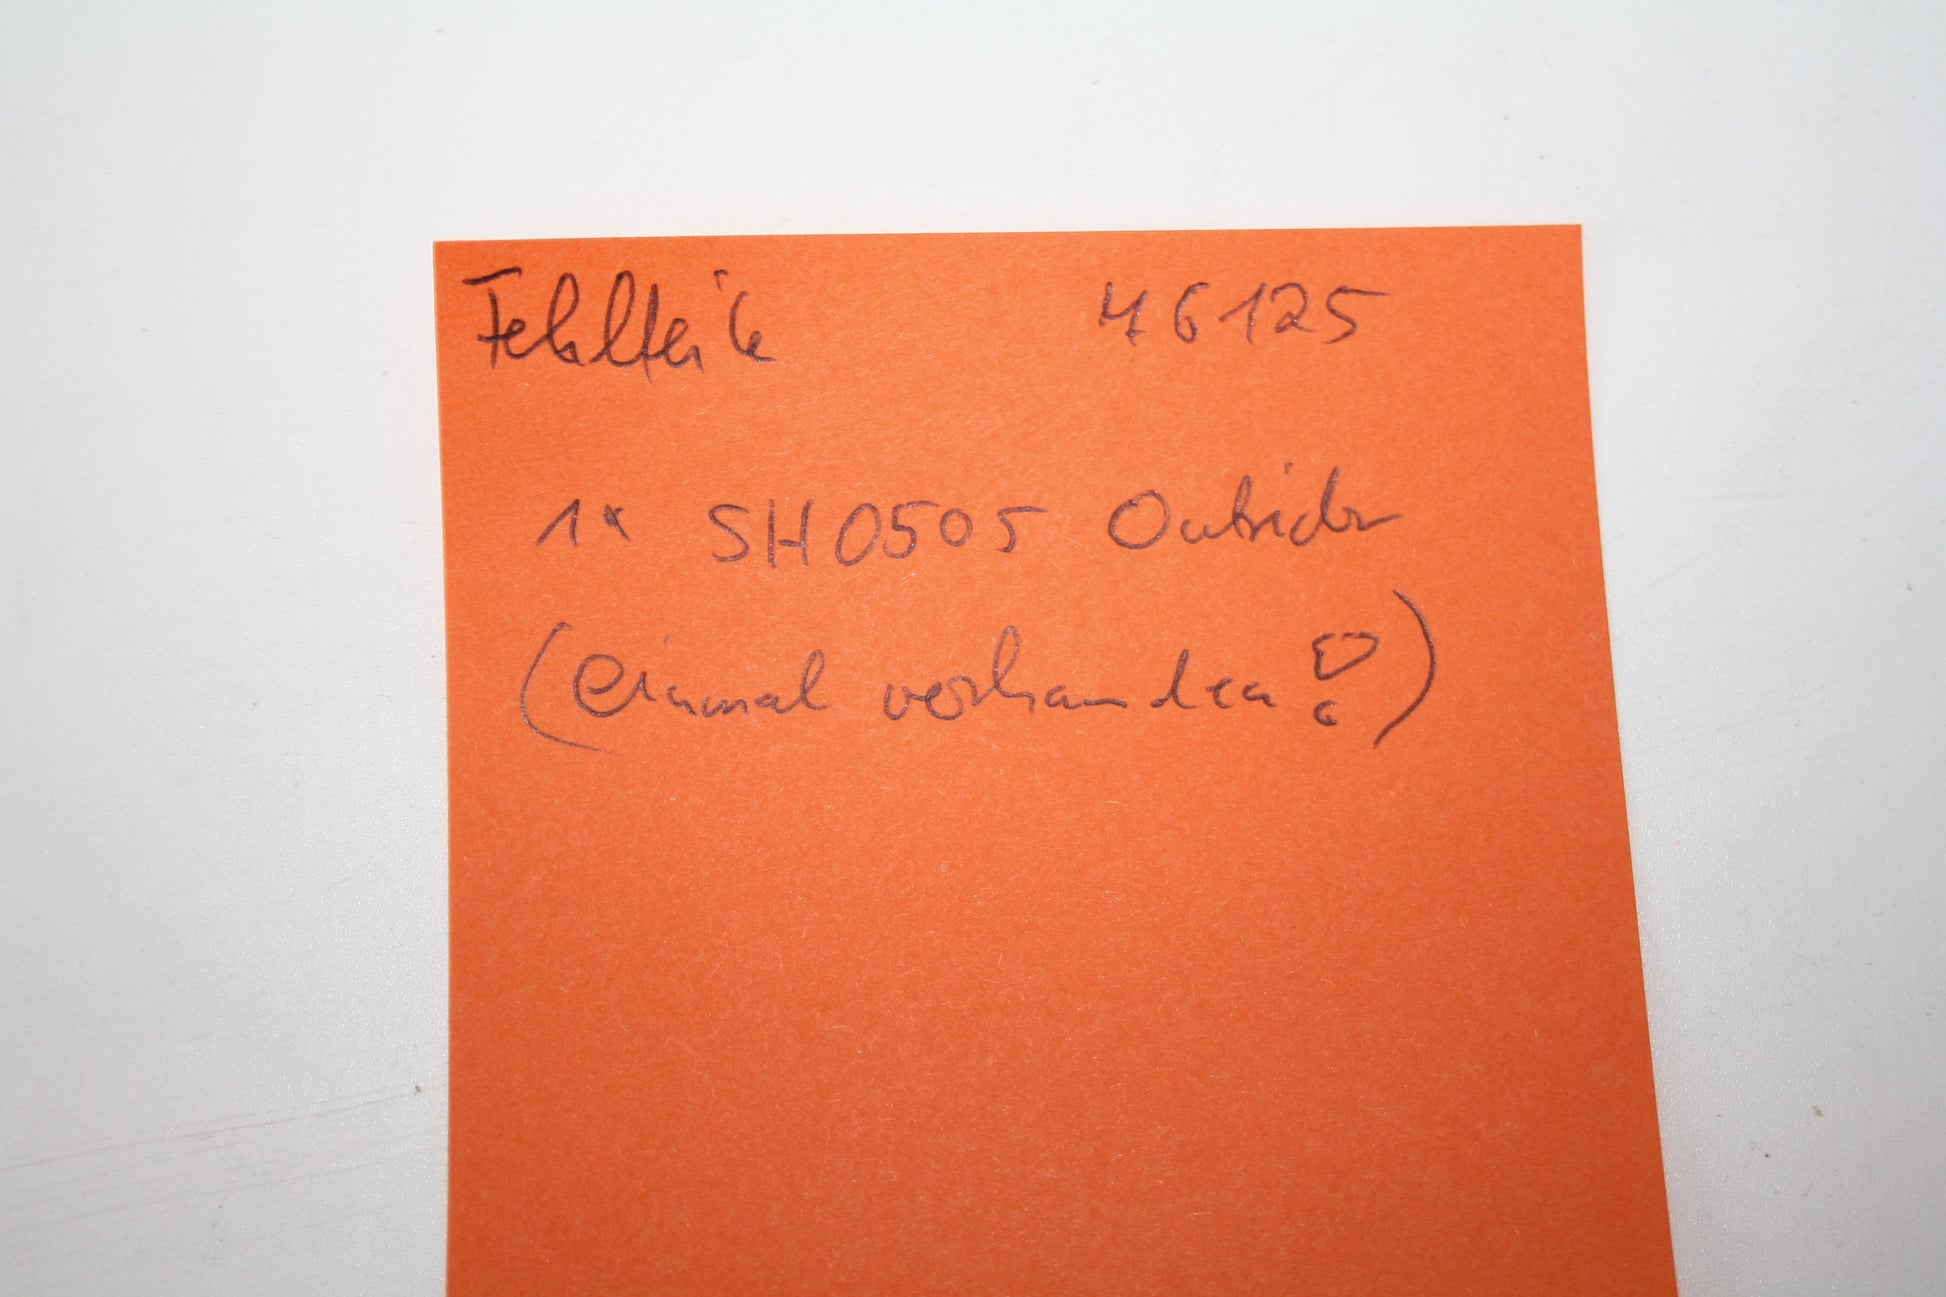 Fehlteile 46125
1x SH0505 Outsider
(einmal vorhanden!)